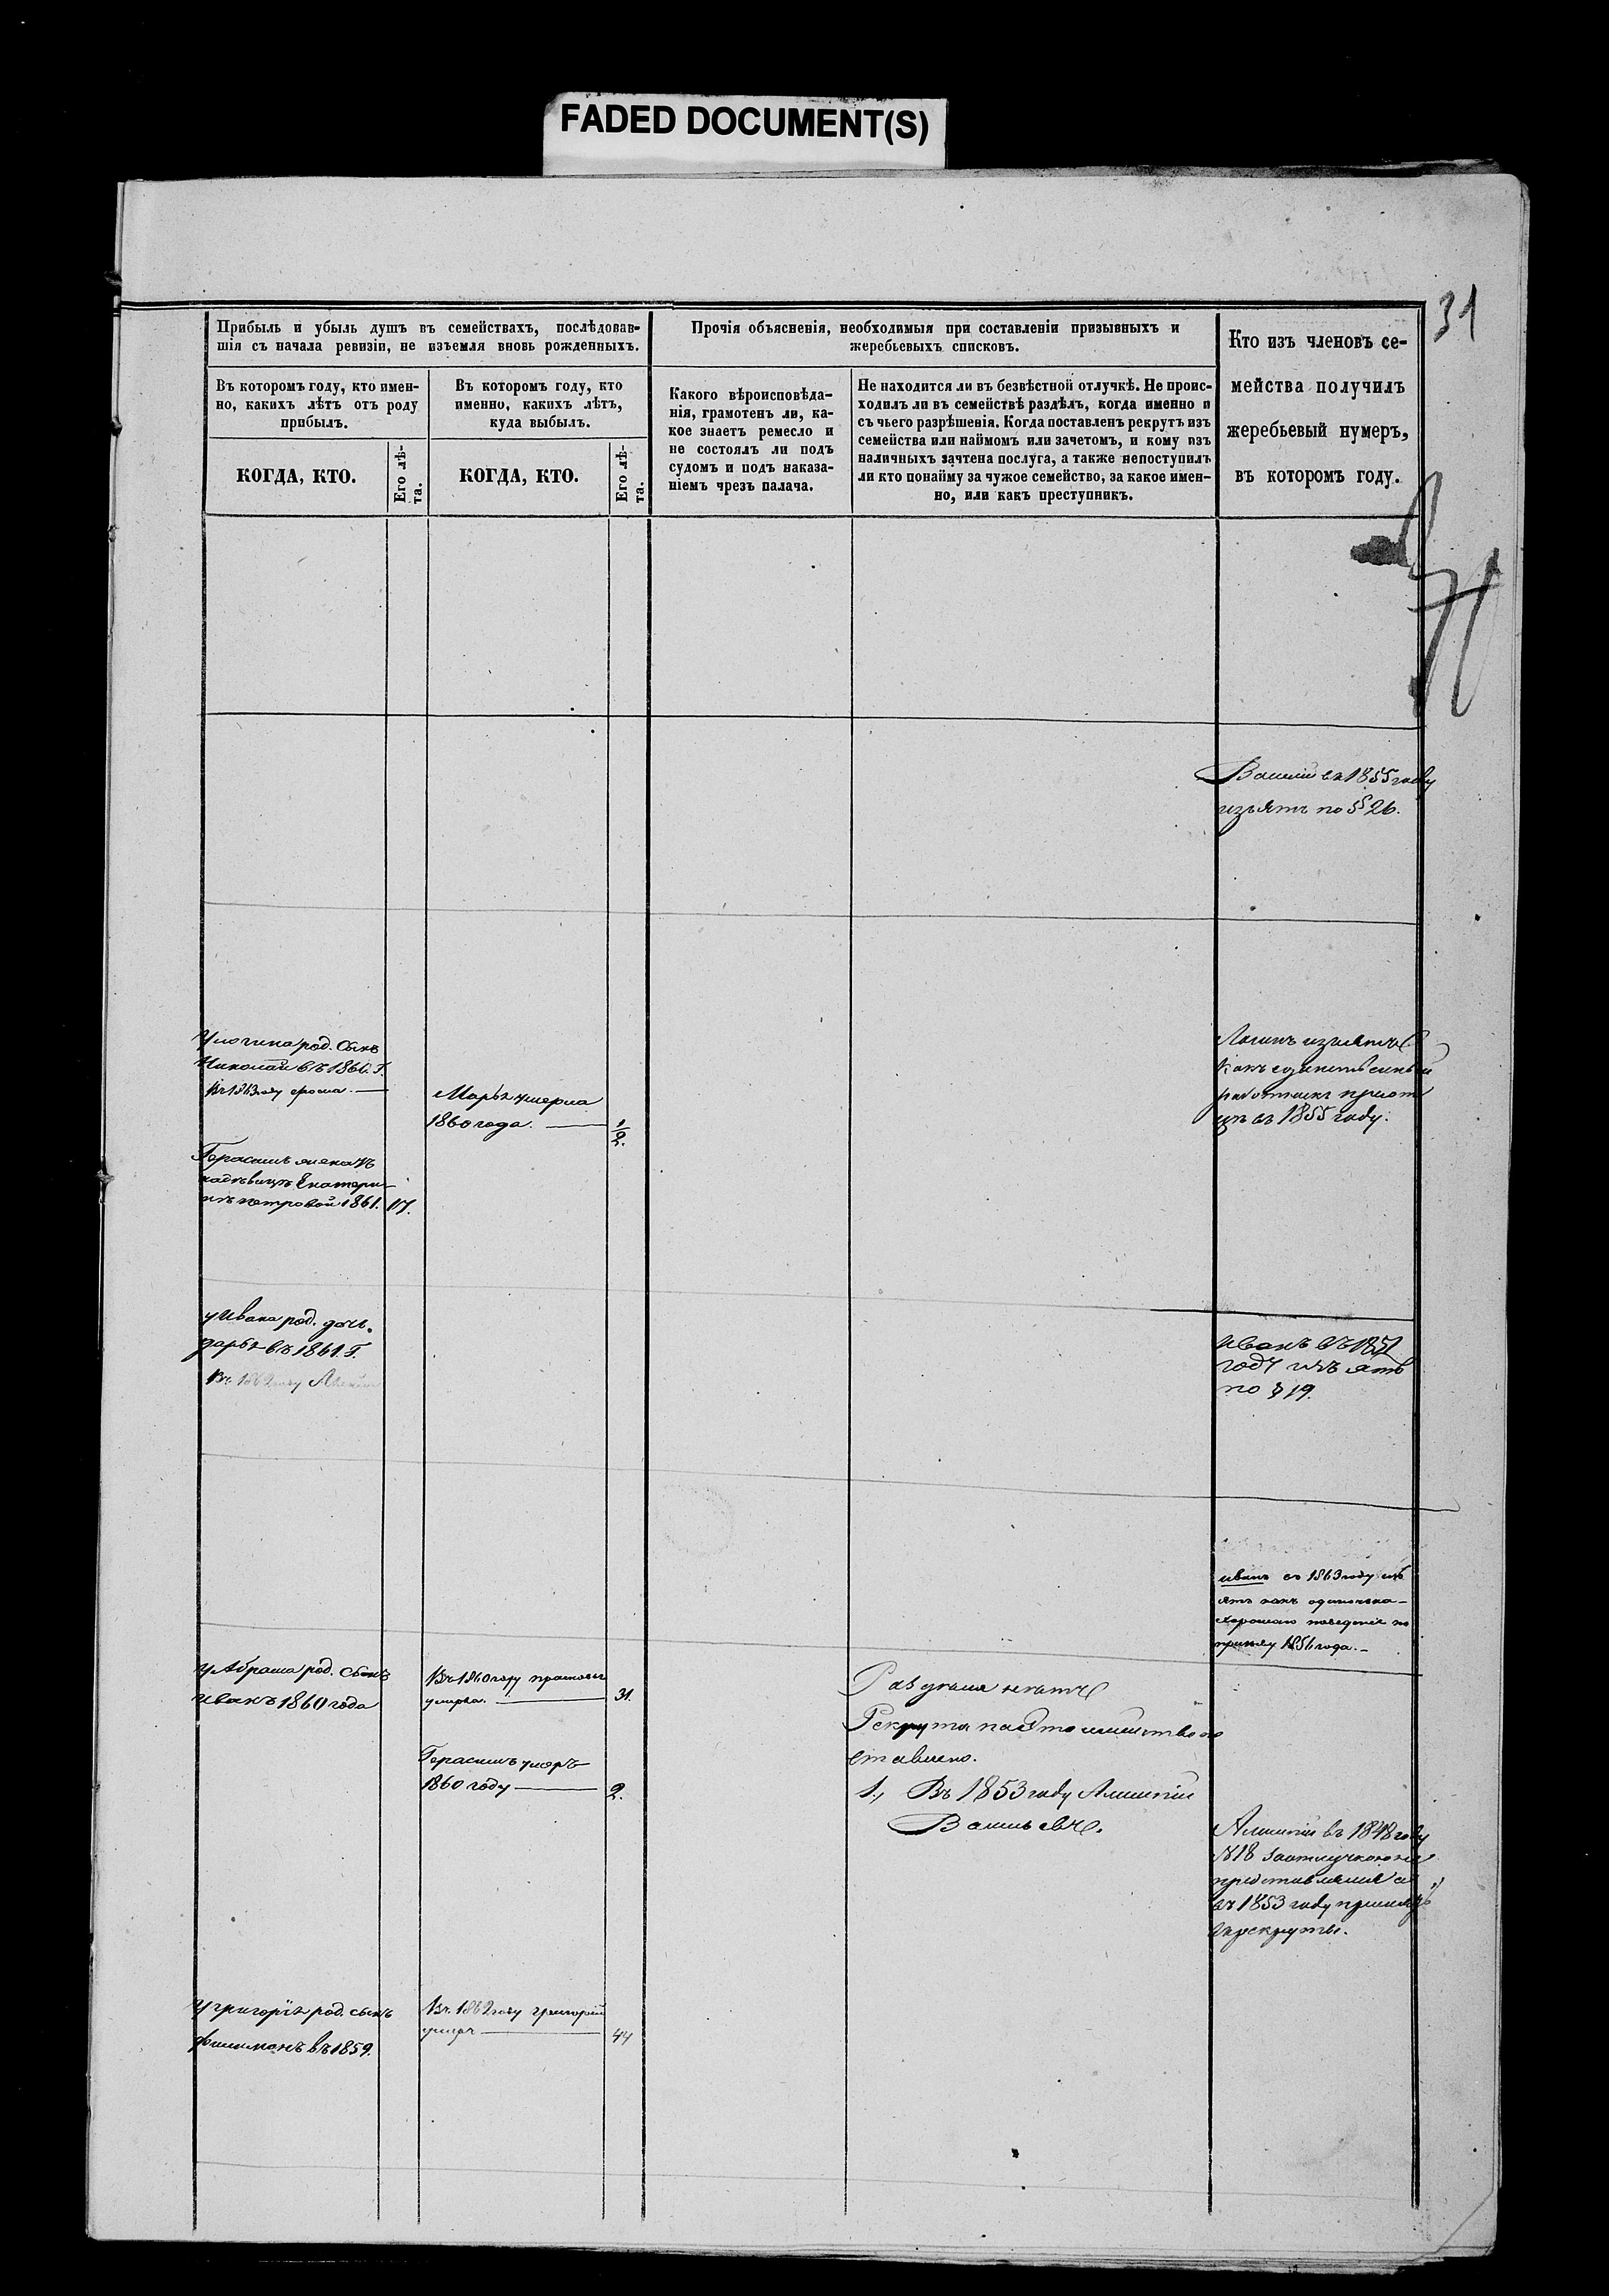 FADED DOCUMENT(S)
31
Прибыль и убыль душъ въ семействахъ, послѣдовав-
шія съ начала ревизіи, не изъемля вновь рожденныхъ.
Въ которомъ году, кто имен-
но, какихъ лѣтъ отъ роду
прибылъ.
КОГДА, КТО.
Его лѣ-
та.
Въ которомъ году, кто
именно, какихъ лѣтъ,
куда выбылъ.
КОГДА, КТО.
Его лѣ-
та.
Прочія объясненія, необходимыя при составленіи призывныхъ и
жеребьевыхъ списковъ.
Какого вѣроисповѣда-
нія, грамотенъ ли, ка-
кое знаетъ ремесло и
не состоялъ ли подъ
судомъ и подъ наказа-
ніемъ чрезъ палача.
Не находится ли въ безвѣстной отлучкѣ. Не проис-
ходилъ ли въ семействѣ раздѣлъ, когда именно и
съ чьего разрѣшенія. Когда поставленъ рекрутъ изъ
семейства или наймомъ или зачетомъ, и кому изъ
наличныхъ зачтена послуга, а также непоступилъ
ли кто понайму за чужое семейство, за какое имен-
но, или какъ преступникъ.
Кто изъ членовъ се-
мейства получилъ
жеребьевый нумеръ,
въ которомъ году.
въ 1855 году
изъятъ по §§ 26.
род. Сынъ
Николай въ 1861. Г.
Въ 1863 году
Марья умерла
1860 года.
1/2.
Логинъ изъятъ
какъ единственный
работникъ при от
цѣ въ 1855 году.
Герасимъ женатъ
на дѣвицѣ Екатери-
нѣ Петровой 1861. 17.
у Ивана род. дочь.
Дарья въ 1861. Г.
Въ 1862 году
Иванъ въ 1851
году изъ ятъ
по § 19.
Иванъ въ 1863 году изъ
ятъ какъ одиночка
хорошаго поведенія по
1856 года.
у Абрама род. Сынъ
Иванъ 1860 года
Въ 1860 году
умерла. 31.
Герасимъ умеръ
1860 году 2.
Раздѣла нѣтъ
Рекрута
ставлено.
1., Въ 1853 году
Васильевъ.
въ 1848 году
№ 18 за отлучкою не
представлялся
въ 1853 году принятъ
въ рекруты.
у Григорія род. сынъ
Филимонъ въ 1859.
Въ 1862 году Григорій
умеръ 44